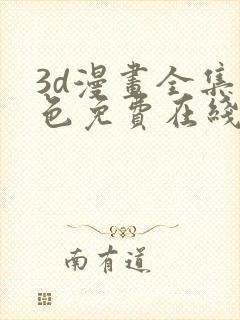 3d漫畫全集
色免費在綫
南有道